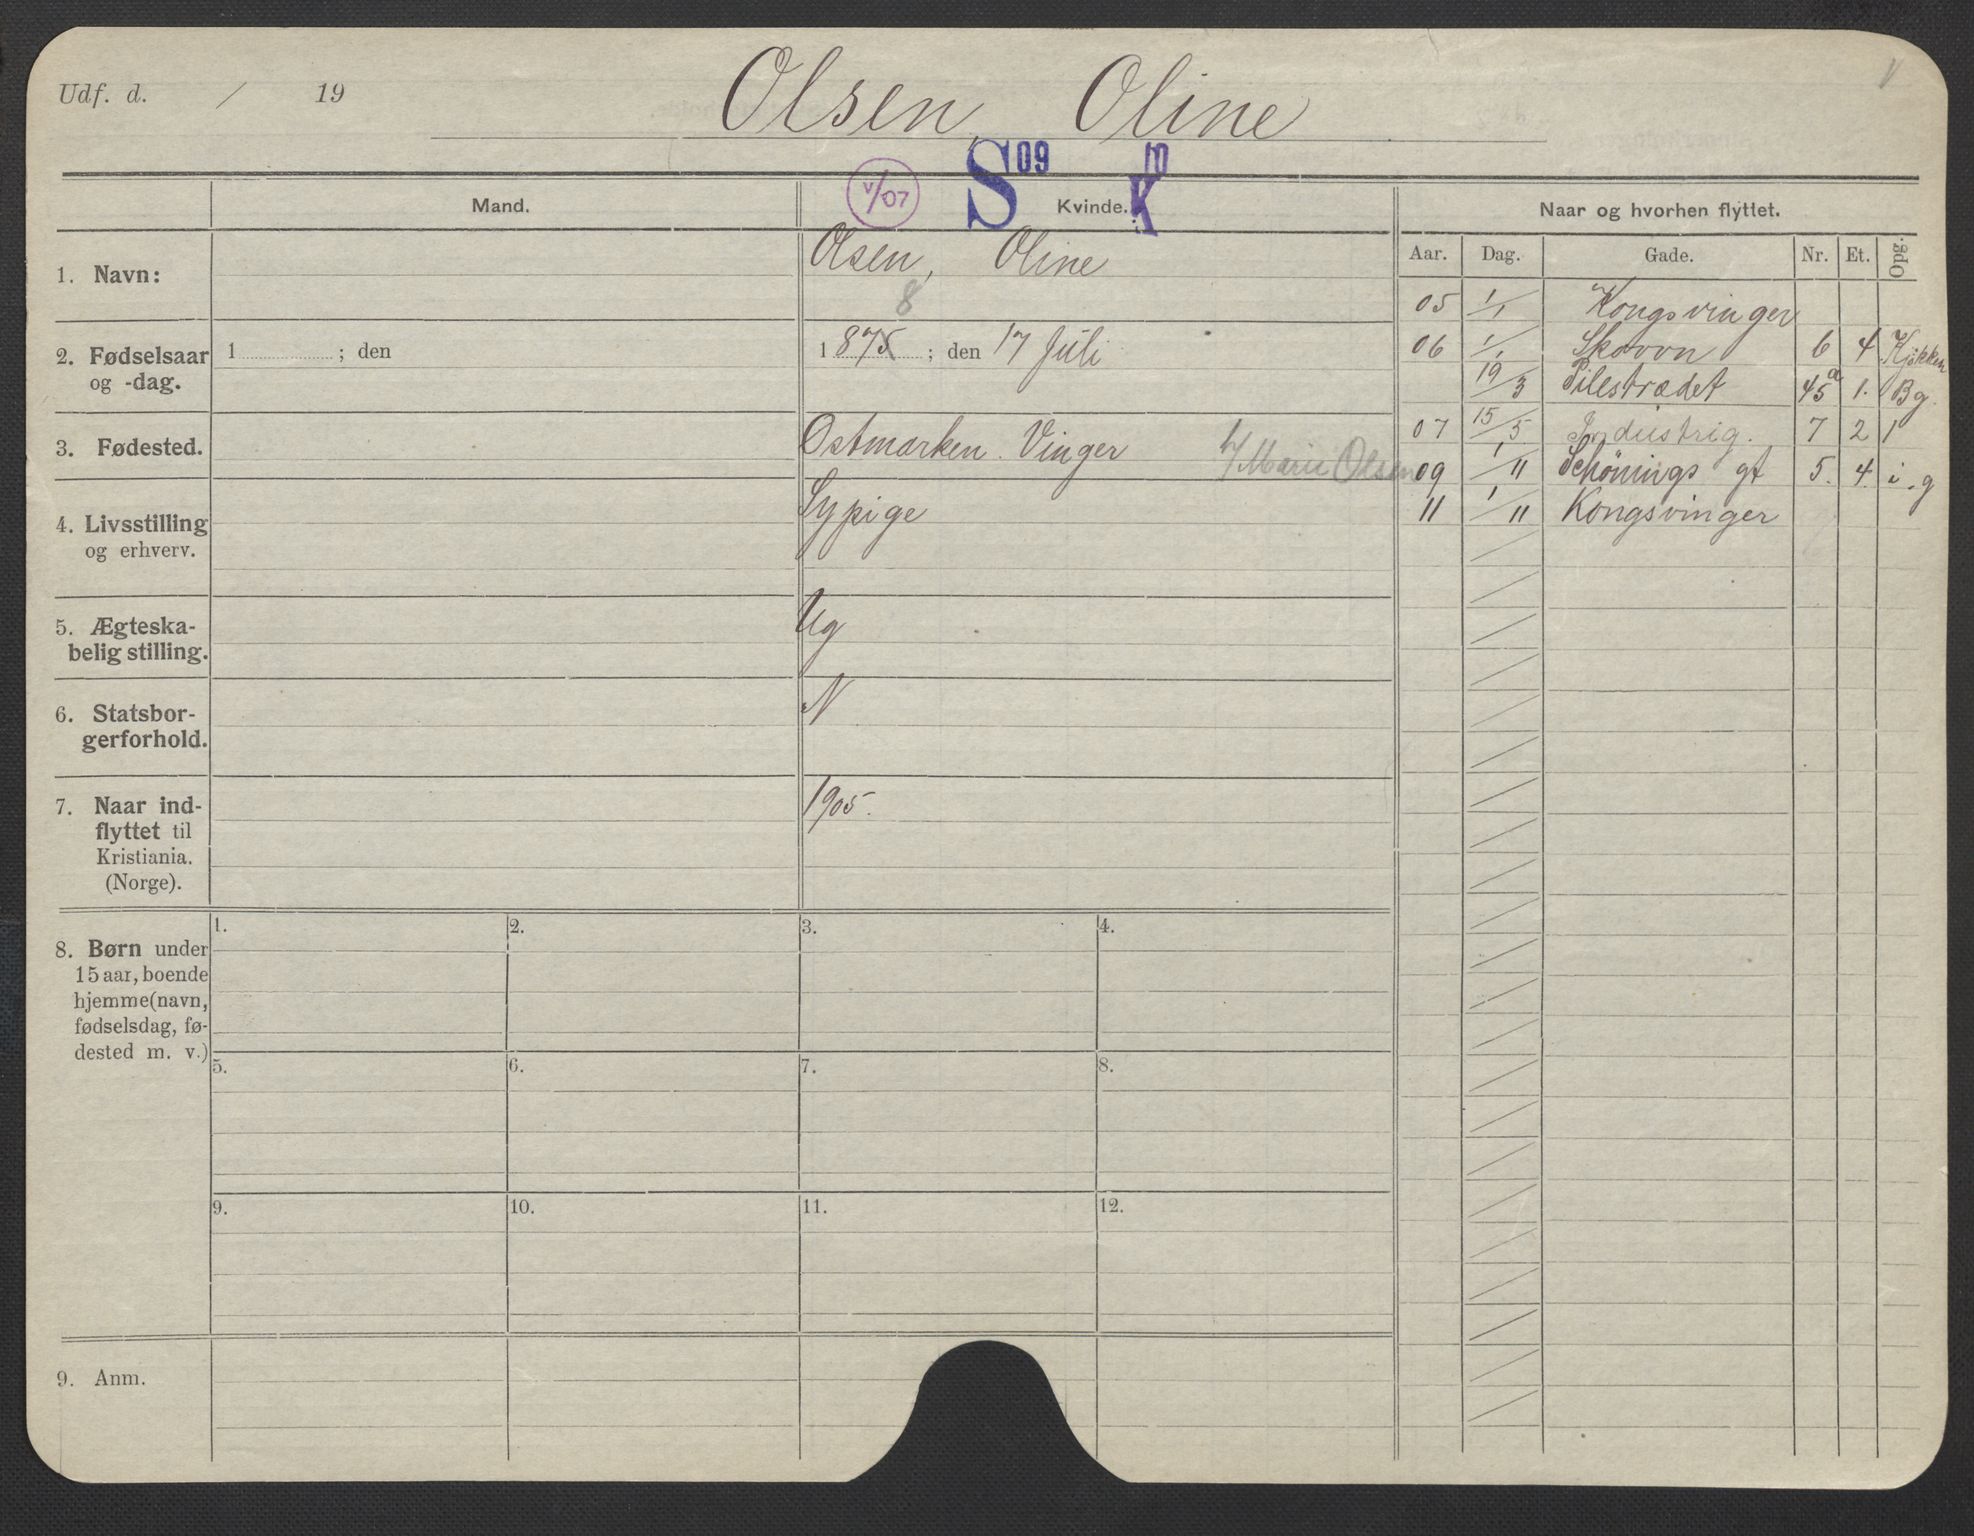 Udf. d. / 19
Olsen, Oline
V/07 S 09 K 10
Mand. Kvinde. Naar og hvorhen flyttet.
Aar. Dag. Gade. Nr. Et. Opg.
1. Navn: Olsen, Oline
8
2. Fødselsaar og -dag. 1 ; den 1875 ; den 17 Juli
3. Fødested. Østmarken. Vinger
h/ Marie Olsen
4. Livsstilling og erhverv. Sypige
5. Ægteska-
belig stilling. Ug
6. Statsbor-
gerforhold. N
7. Naar ind-
flyttet til
Kristiania.
(Norge). 1905.
05 1/1 Kongsvinger
06 1/1 Skovvn 6 4 Kjøkken
19/3 Pilestrædet 45a 1. Bg.
07 15/5 Industrig. 7 2 1
09 1/11 Schönings gt 5. 4. i. g
11 1/11 Kongsvinger
8. Børn under
15 aar, boende
hjemme (navn,
fødselsdag, fø-
dested m. v.)
1. 2. 3. 4.
5. 6. 7. 8.
9. 10. 11. 12.
9. Anm.